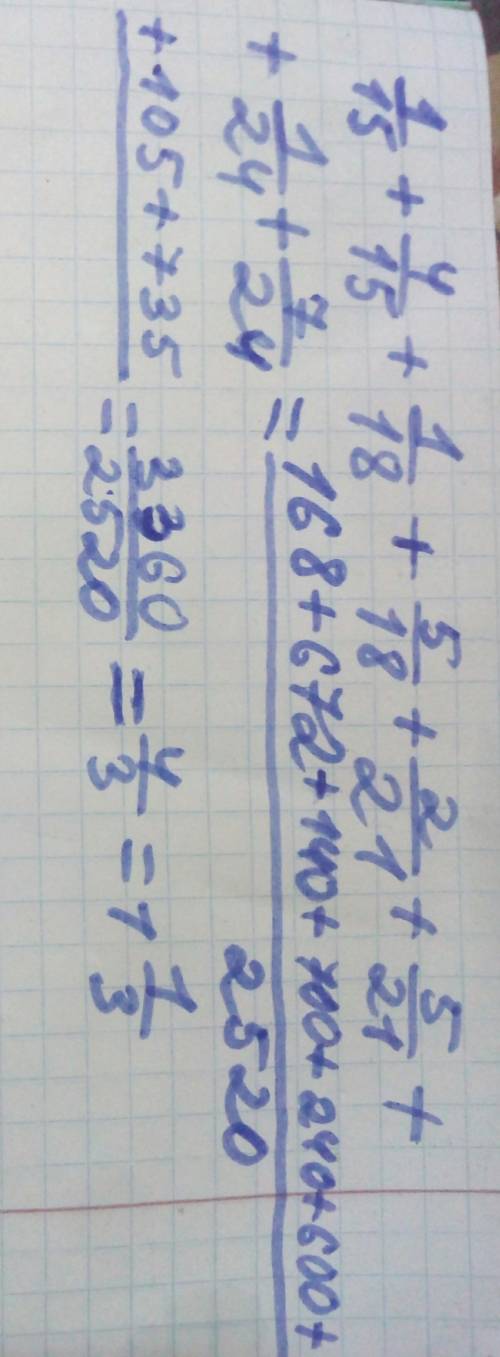 1/15 + 4/15 + 1/18 + 5/18 + 2/21 + 5/21 +
+ 1/24 + 7/24 = 168+672+140+700+240+600+
+105++35 / 2520
= 3360/2520 = 4/3 = 1 1/3